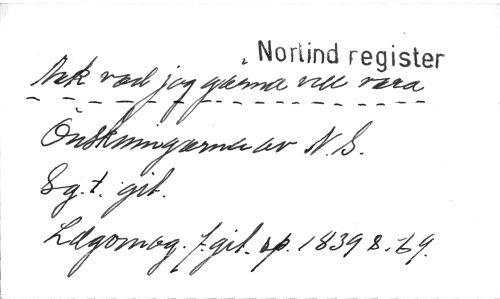 Norlind register
Ack vad jag gärna vill vara
Önskningarna av N.S.
Sg. t. git.
Lægomag. f. git. sp. 1839 s. 69.